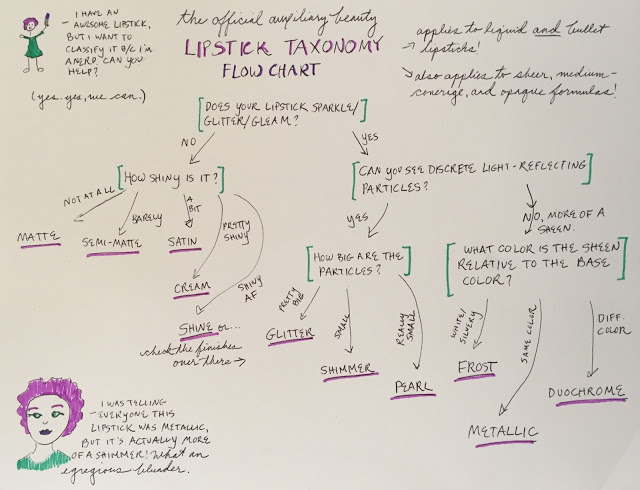 - I HAVE AN
AWESOME LIPSTICK,
BUT I WANT TO
CLASSIFY IT B/C I'M
A NERD. CAN YOU
HELP?
(yes. yes, we can.)
the official auxiliary beauty
LIPSTICK TAXONOMY
FLOW CHART
applies to liquid and bullet
lipsticks!
also applies to sheer, medium-
coverage, and opaque formulas!
DOES YOUR LIPSTICK SPARKLE/
GLITTER/GLEAM?
NO
YES
HOW SHINY IS IT?
NOT AT ALL
BARELY
A
BIT
PRETTY
SHINY
SHINY
AF
MATTE
SEMI-MATTE
SATIN
CREAM
SHINE or...
check the finishes
over there →
CAN YOU SEE DISCRETE LIGHT-REFLECTING
PARTICLES?
YES
NO, MORE OF A
SHEEN.
HOW BIG ARE THE
PARTICLES?
PRETTY
BIG
SMALL
REALLY
SMALL
GLITTER
SHIMMER
PEARL
WHAT COLOR IS THE SHEEN
RELATIVE TO THE BASE
COLOR?
WHITE/
SILVERY
SAME COLOR
DIFF.
COLOR
FROST
METALLIC
DUOCHROME
I WAS TELLING
- EVERYONE THIS
LIPSTICK WAS METALLIC,
BUT IT'S ACTUALLY MORE
OF A SHIMMER! What an
egregious blunder.